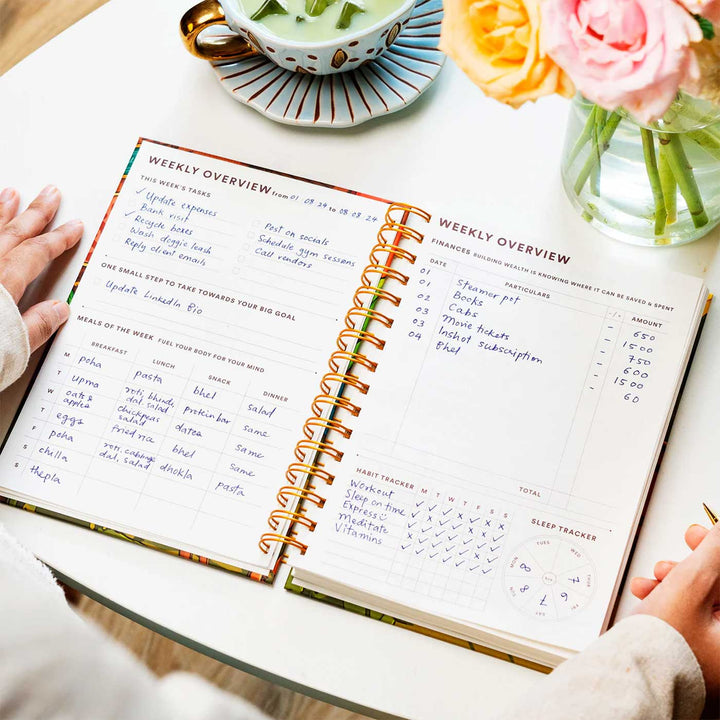 WEEKLY OVERVIEW from 01.08.24 to 08.08.24
THIS WEEK'S TASKS
✓ Update expenses
Bank visit
✓ Recycle boxes
Wash doggie leash
Reply client emails
Post on socials
Schedule gym sessions
Call vendors
ONE SMALL STEP TO TAKE TOWARDS YOUR BIG GOAL
Update LinkedIn Bio
MEALS OF THE WEEK FUEL YOUR BODY FOR YOUR MIND
BREAKFAST LUNCH SNACK DINNER
M poha pasta bhel salad
T upma roti, bhindi, dal, salad protein bar same
W oats & apples chickpeas salad dates same
T eggs fried rice bhel same
F poha roti, cabbage dal, salad dhokla pasta
S chilla
S thepla
WEEKLY OVERVIEW
FINANCES BUILDING WEALTH IS KNOWING WHERE IT CAN BE SAVED & SPENT
DATE PARTICULARS -/+ AMOUNT
01 Steamer pot - 650
01 Books - 1500
02 Cabs - 750
03 Movie tickets - 600
03 Inshot subscription - 1500
04 Bhel - 60
TOTAL
HABIT TRACKER M T W T F S S
Workout ✓ ✓ ✓ ✓ ✓ x x
Sleep on time
Express ☺
Meditate
Vitamins
SLEEP TRACKER
TUES WED
MON THU
SUN FRI
SAT
8 7
8 7